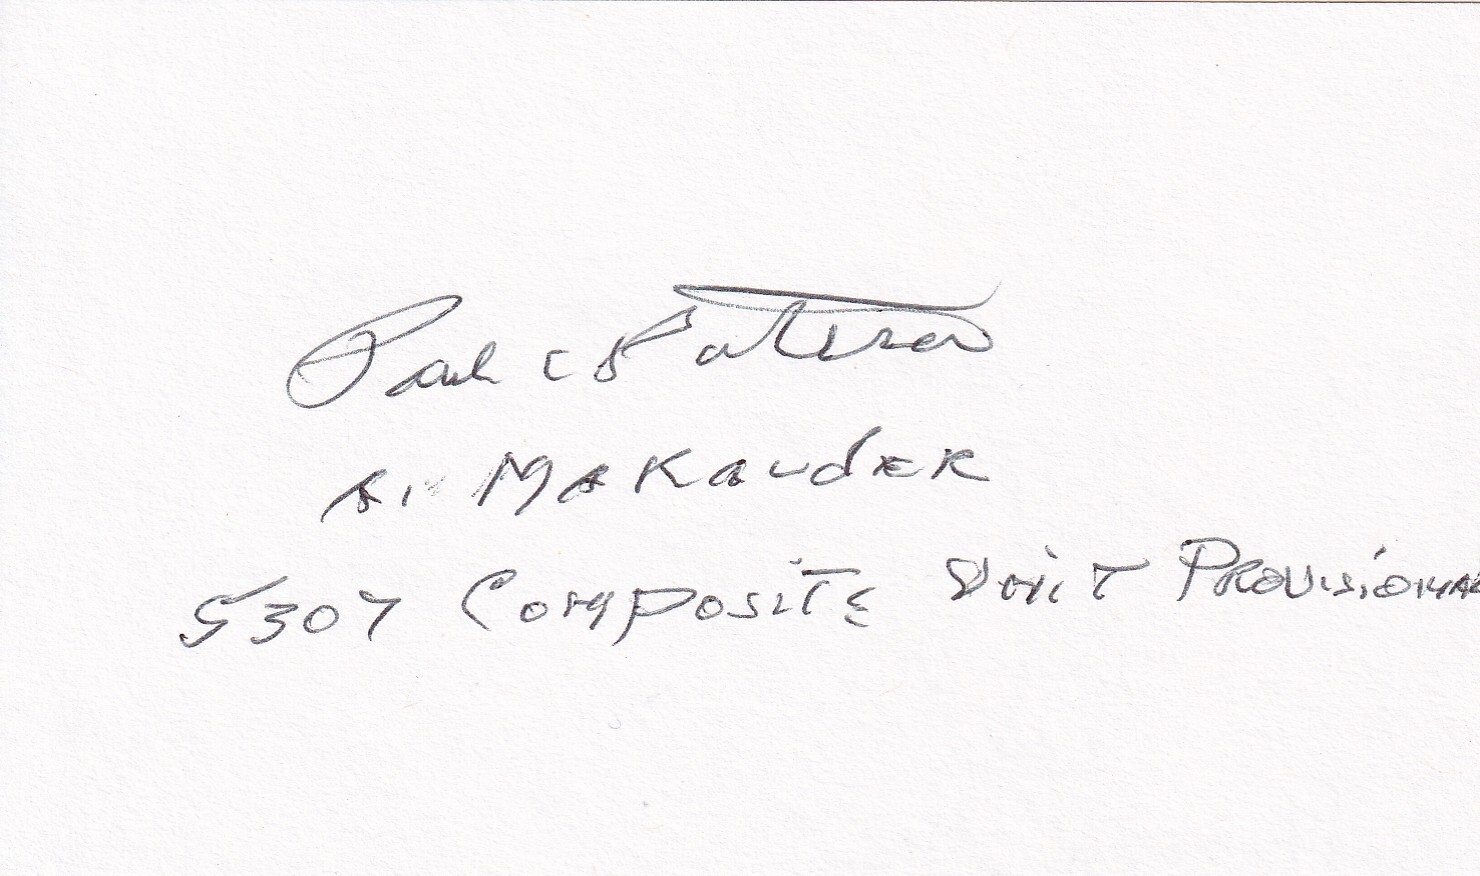 Paul
MARauder
5307 Composite Unit Provisional